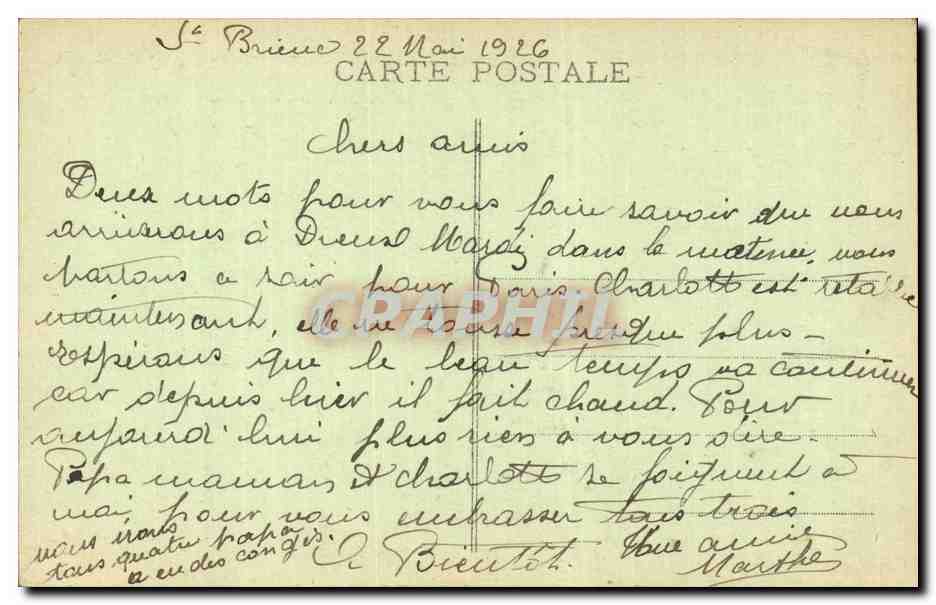 St Brieuc 22 Mai 1926
CARTE POSTALE
Chers amis
Deux mots pour vous faire savoir que nous
arriverons à Dreux Mardi dans la matinée, nous
partons ce soir pour Paris. Charlotte est rétablie
maintenant, elle ne tousse presque plus –
Espérons que le beau temps va continuer
car depuis hier il fait chaud. Pour
aujourd'hui plus rien à vous dire –
Papa maman et Charlotte se joignent à
moi pour vous embrasser tous trois
nous irons
tous quatre papa
a eu des congés.
A Bientôt.
Une amie
Marthe
CRAPHIL